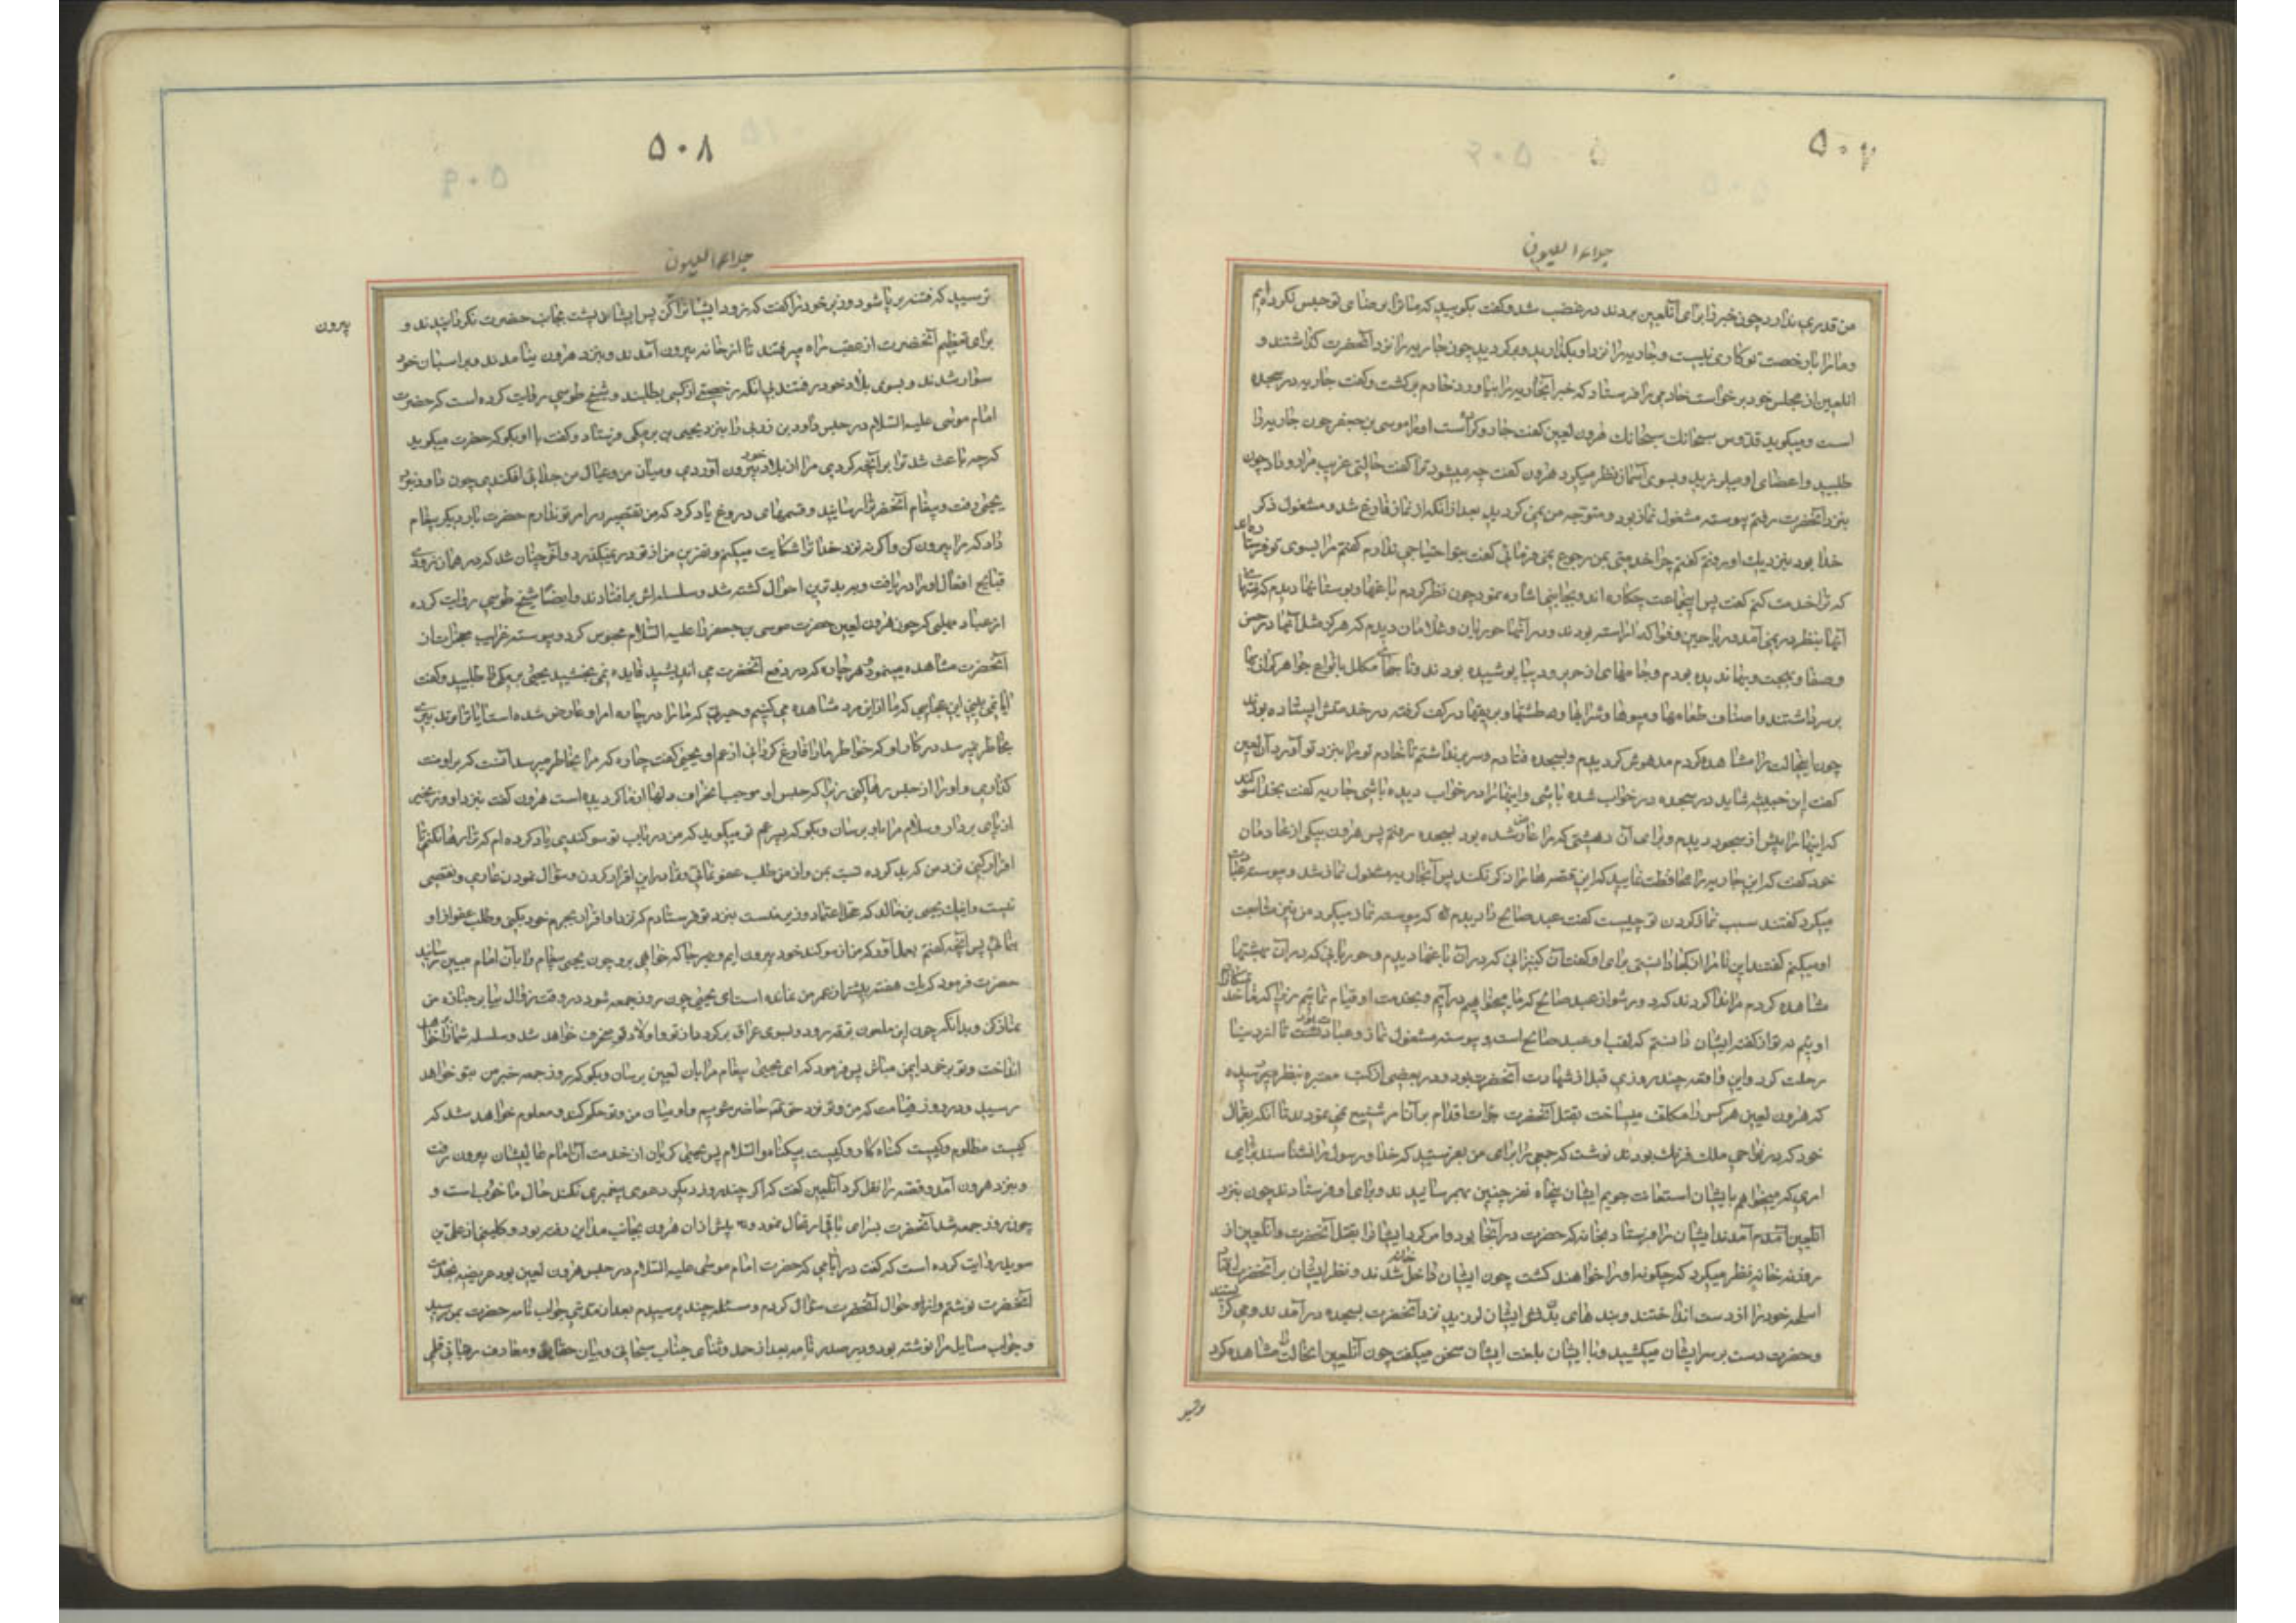 ۵۰۷
جلاء العیون
من قدری ندارد چون خبر را برای آنلعین بردند در غضب شد و گفت بگویید که ما ترا برضای تو حبس نکرده‌ایم
و ما را با رخصت تو کاری نیست و جاریه را نزد او بگذارید و برگردید چون جاریه را نزد آنحضرت گذاشتند و
آنلعین از مجلس خود برخواست خادمی را فرستاد که خبر آنجاریه را بیاورد خادم برگشت و گفت جاریه در سجده
است و میگوید قدوس سبحانک سبحانک هرون لعین گفت جادو کرده است او را موسی بن جعفر چون جاریه را
طلبید و اعضای او میلرزید و بسوی آسمان نظر میکرد هرون گفت چه میشود ترا گفت حالتی غریب مرا رو داد چون
بنزد آنحضرت رفتم پیوسته مشغول نماز بود و متوجه من نمی گردید بعد از آنکه از نماز فارغ شد و مشغول ذکر
خدا بود بنزدیک او رفتم گفتم چرا خدمتی بمن رجوع نمی فرمائی گفت بتو احتیاجی ندارم گفتم مرا بسوی تو فرستاده‌اند
که ترا خدمت کنم گفت پس اینجماعت چکاره اند و بجانبی اشاره نمود چون نظر کردم باغها و بوستانها دیدم که منتهای
آنها بنظر در نمی آمد و ریاحین و فواکه آراسته بودند و در آنها حوریان و غلامان دیدم که هرگز مثل آنها در حسن
و صفا و بهجت و بها ندیده بودم و جامهای از حریر و دیبا پوشیده بودند و تاجهای مکلل بانواع جواهر گرانبها
بر سر داشتند و اصناف طعامها و میوها و شرابها و طشتها و ابریقها در کف گرفته در خدمتش ایستاده بودند
چون اینحالت را مشاهده کردم مدهوش گردیدم و بسجده فتادم و سر برنداشتم تا خادم تو مرا بنزد تو آورد آن لعین
گفت این خبیثه شاید در سجده در خواب شده باشی و اینها را در خواب دیده باشی جاریه گفت بخدا سوگند
که اینها را پیش از سجود دیدم و برای آن دهشتی که مرا عارض شده بود بسجده رفتم پس هرون بیکی از خادمان
خود گفت که این جاریه را محافظت نمایید که این قصه ها را ذکر نکند پس آنجاریه مشغول نماز شد و پیوسته عبادت
میکرد گفتند سبب نماز کردن تو چیست گفت عبد صالح را دیدم که پیوسته نماز میکرد من نیز متابعت
او میکنم گفتند این نام را از کجا دانستی برای او گفت آن کنیزانی که در آن باغها دیدم و حوریانی که در آن بهشتها
مشاهده کردم مرا ندا کردند که دور شو از عبد صالح که ما میخواهیم درآیم و بخدمت او قیام نمائیم زیرا که ما خدمتکاران
اوئیم نه تو از گفته ایشان دانستم که لقب او عبد صالح است و پیوسته مشغول نماز و عبادت بود تا از دنیا
رحلت کرد و این واقعه چند روزی قبل از شهادت آنحضرت بود و در بعضی از کتب معتبره بنظر رسیده
که هرون لعین هر کس را مکلف میساخت بقتل آنحضرت جرأت اقدام بر آن امر شنیع نمی نمودند تا آنکه بعمال
خود که در نواحی ملک فرنگ بودند نوشت که جمعی را برای من بفرستید که خدا و رسول را نشناسند برای
امری که میخواهم بایشان استعانت جویم ایشان پنجاه نفر چنین بهم رسانیدند و برای او فرستادند چون بنزد
آنلعین آمدند ایشان را فرستاد بخانه که حضرت در آنجا بود و امر کرد ایشان را بقتل آنحضرت و آنلعین از
روزنه خانه نظر میکرد که چگونه او را خواهند کشت چون ایشان داخل خانه شدند و نظر ایشان بر آنحضرت افتاد
اسلحه خود را از دست انداختند و بند های بدنهای ایشان لرزید نزد آنحضرت بسجده درآمدند و می گریستند
و حضرت دست بر سر ایشان میکشید و با ایشان بلغت ایشان سخن میگفت چون آنلعین آنحالت مشاهده کرد
۵۰۸
جلاء العیون
ترسید که فتنه بر پا شود وزیر خود را گفت که زود ایشانرا بیرون کن پس ایشان پشت بجانب حضرت نکردانیدند و
برای تعظیم آنحضرت از عقب راه میرفتند تا از خانه بیرون آمدند و بنزد هرون نیامدند و بر اسبان خود
سوار شدند و بسوی بلاد خود رفتند بی آنکه رخصتی از کسی بطلبند و شیخ طوسی روایت کرده است که حضرت
امام موسی علیه السلام در حبس داود بن زربی را بنزد یحیی بن برمکی فرستاد و گفت با او بگو که حضرت میگوید
که چه باعث شد ترا بر آنچه کردی مرا از بلاد خود بیرون آوردی و میان من و عیال من جدائی افکندی چون داود بنزد
یحیی رفت و پیغام آنحضرت را رسانید و قسمهای دروغ یاد کرد که من تقصیر در امر تو ندارم حضرت بار دیگر پیغام
داد که مرا بیرون کن و اگر نه نزد خدا ترا شکایت میکنم و نفرین من از تو در نمیگذرد و آخر چنان شد که در همان زودی
قبایح افعال او را دریافت و ببدترین احوال کشته شد و سلسله‌اش برافتادند و ایضا شیخ طوسی روایت کرده
از عباد مهلبی که چون هرون لعین حضرت موسی بن جعفر را علیه السلام محبوس کرد و پیوسته غرایب معجزات از
آنحضرت مشاهده مینمود و هر چاره که در دفع آنحضرت می اندیشید فایده نمی بخشید یحیی برمکی را طلبید و گفت
آیا نمی بینی این عجایبی که ما از این مرد مشاهده می کنیم و حیرتی که ما را در چاره امر او عارض شده است آیا ترا تدبیری
بخاطر میرسد در کار او که خواطر ما را فارغ گردانی از غم او یحیی گفت چاره که مرا بخاطر میرسد آنست که بر او منت
گذاری و او را از حبس رها کنی زیرا که حبس او موجب انحراف دلها از ما گردیده است هرون گفت بنزد او رو زنجیر
از پای بردار و سلام مرا باو برسان و بگو که پسر عم تو میگوید که من در باب تو سوگندی یاد کرده ام که ترا رها نکنم تا
اقرار کنی نزد من که بد کرده نسبت بمن و از من طلب عفو نمائی و ترا در این اقرار کردن و سؤال نمودن عاری و نقصی
نیست و اینک یحیی بن خالد که محل اعتماد و وزیر منست بنزد تو فرستادم که نزد او اقرار بجرم خود بکنی و طلب عفو از او
نمائی پس آنچه گفتم بعمل آور که من از سوگند خود بیرون ایم و بهر جا که خواهی برو چون یحیی پیغام را بآن امام مبین رسانید
حضرت فرمود که یک هفته بیشتر از عمر من نمانده است ای یحیی چون روز جمعه شود در وقت زوال بیا بر جنازه من
نماز کن و بدانکه چون این ملعون برقه رود و بسوی عراق برگردد از تو و اولاد تو منحرف خواهد شد و سلسله شما را بر خواهد
انداخت و تو بر خود ایمن مباش پس فرمود که ای یحیی پیغام مرا بآن لعین برسان و بگو که روز جمعه خبر من بتو خواهد
رسید و در روز قیامت که من و تو نزد حق تعالی حاضر شویم و او میان من و تو حکم کند و معلوم خواهد شد که
کیست مظلوم و کیست گناه کار و کیست بیگناه والسلام پس یحیی گریان از خدمت آن امام عالیشان بیرون رفت
و بنزد هرون آمد و قصه را نقل کرد آنلعین گفت که اگر چند روز دیگر دعوی پیغمبری نکند حال ما خوب است و
چون روز جمعه شد آنحضرت بسرای باقی ارتحال نمود و پیش از آن هرون بجانب مداین رفته بود و کلینی از علی بن
سوید روایت کرده است که گفت در ایامی که حضرت امام موسی علیه السلام در حبس هرون لعین بود عریضه بخدمت
آنحضرت نوشتم و از او احوال آنحضرت سؤال کردم و مسئله چند پرسیدم بعد از مدتی جواب نامه حضرت بمن رسید
و جواب مسایل مرا نوشته بود و در صدر نامه بعد از حمد و ثنای جناب سبحانی و بیان حقایق و معارف ربانی قلمی
بیرون